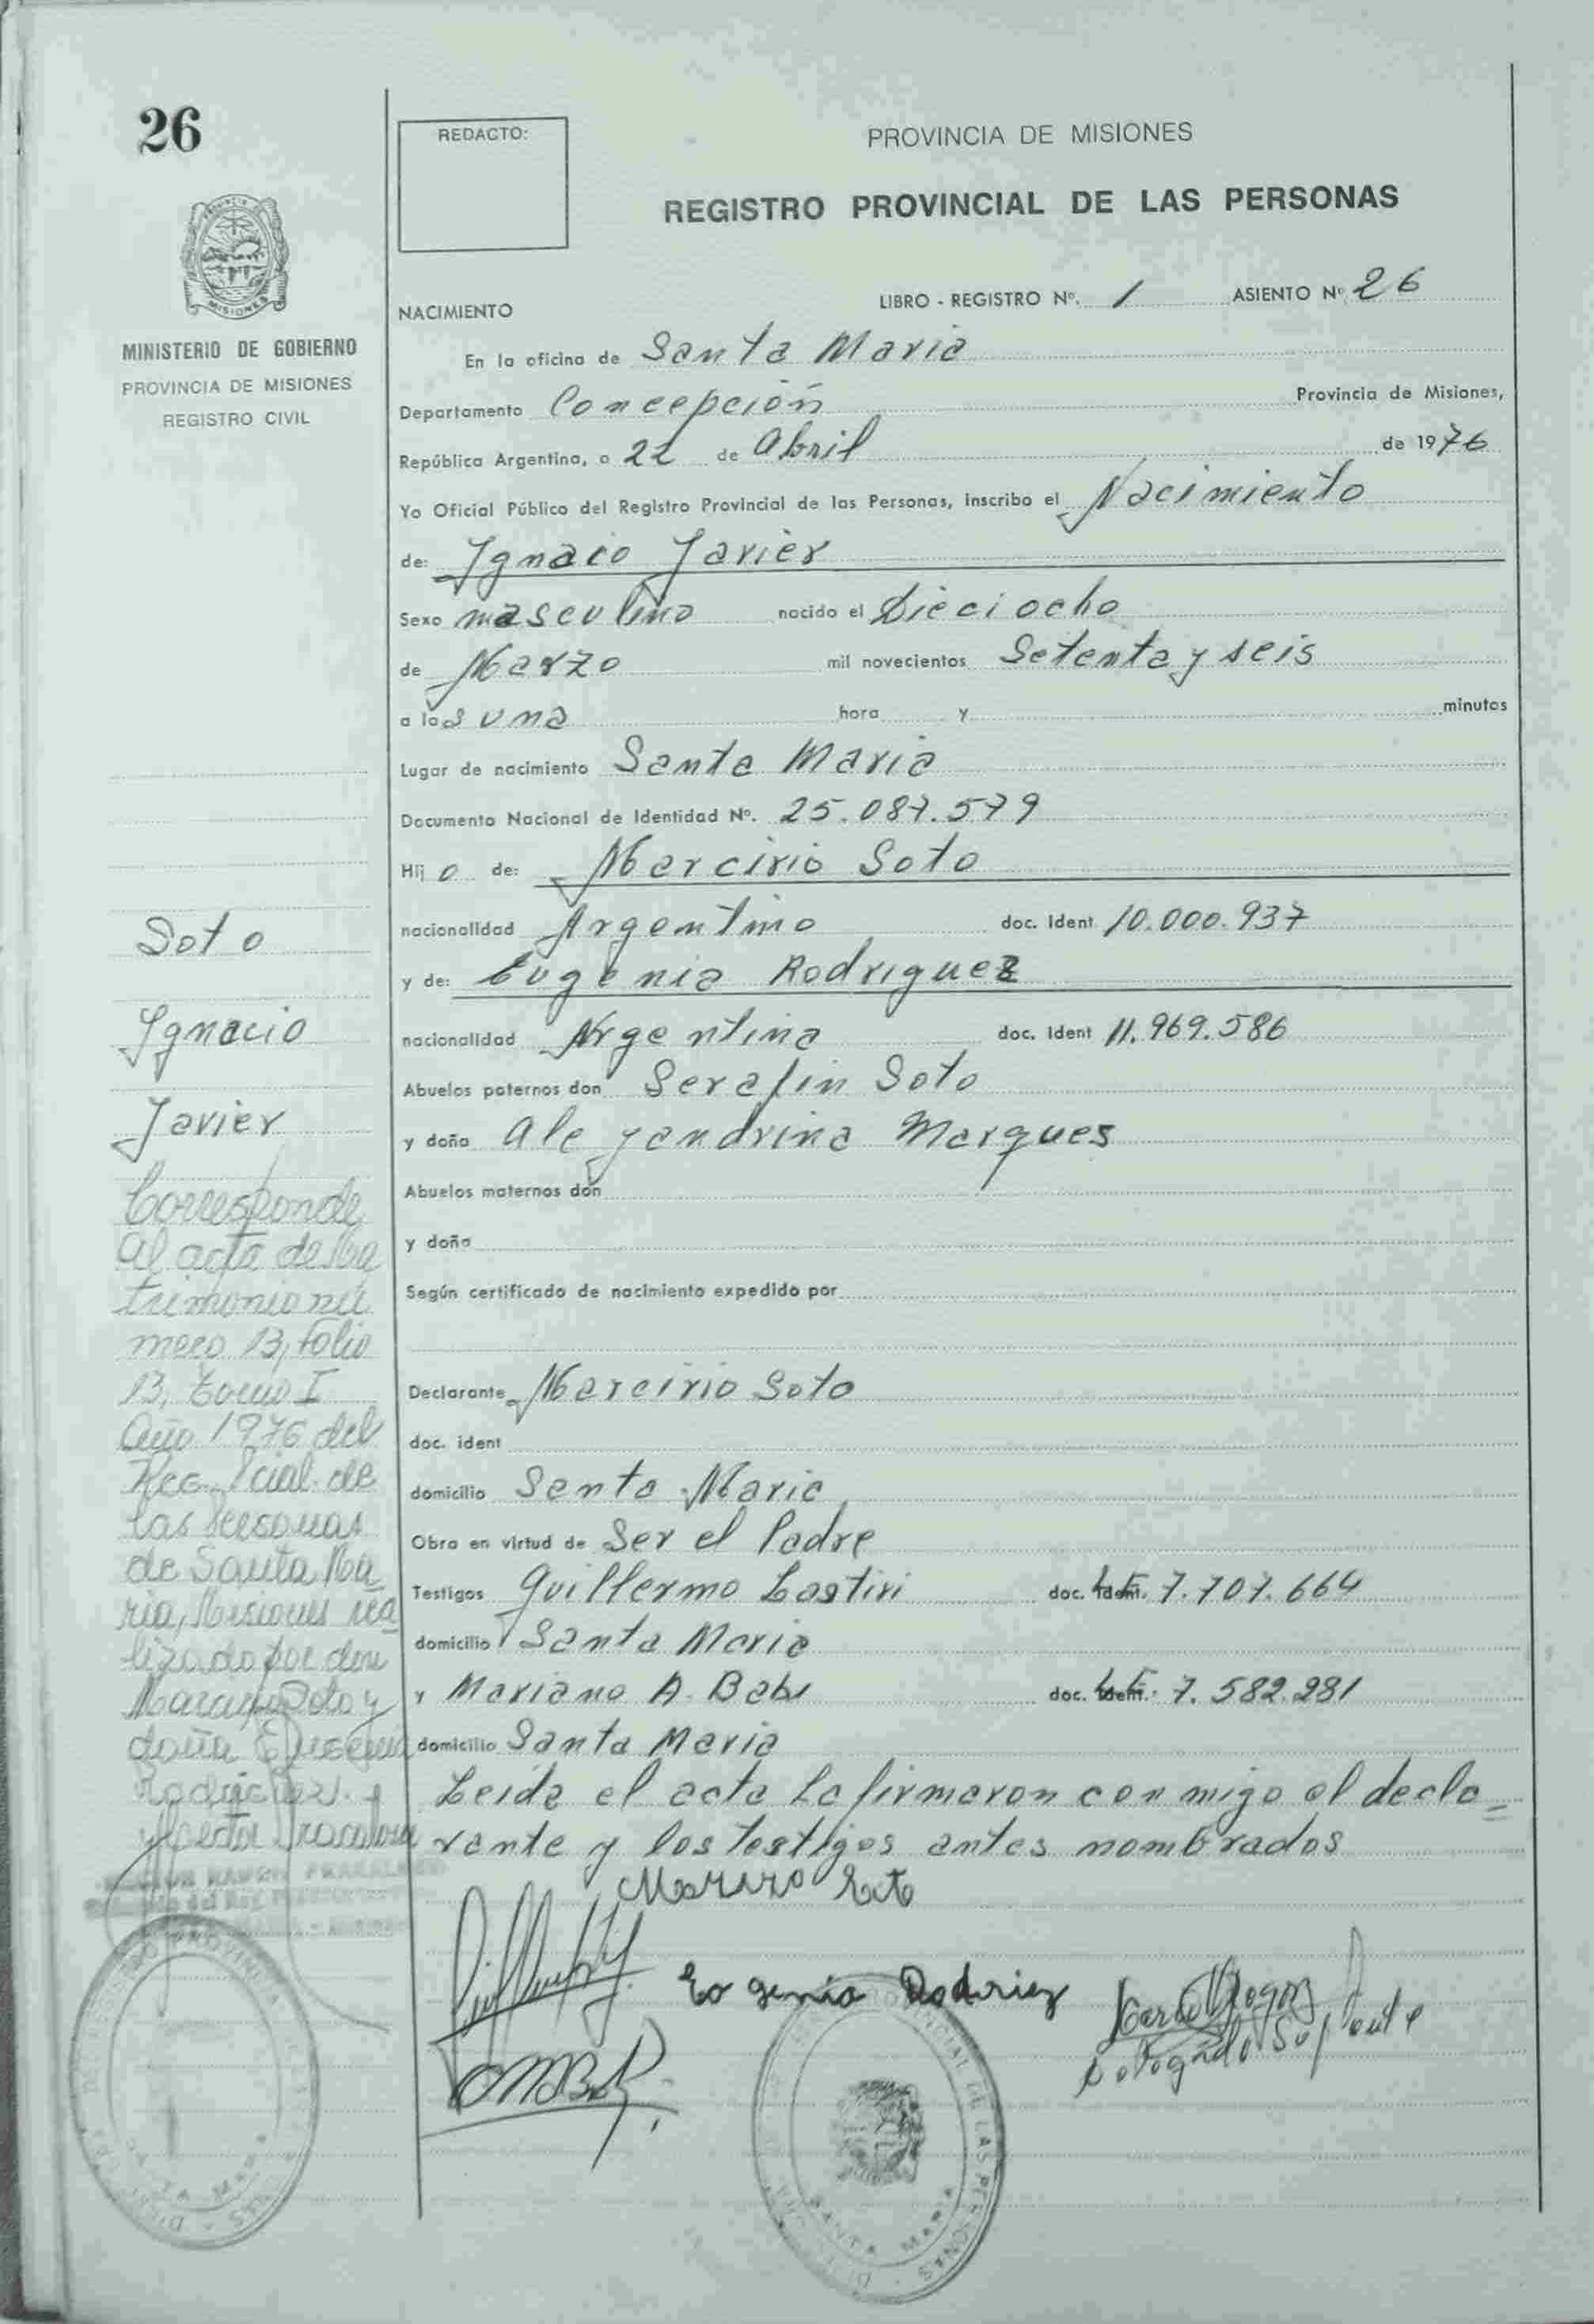 26
MINISTERIO DE GOBIERNO
PROVINCIA DE MISIONES
REGISTRO CIVIL
REDACTO:
PROVINCIA DE MISIONES
REGISTRO PROVINCIAL DE LAS PERSONAS
NACIMIENTO LIBRO - REGISTRO Nº. 1 ASIENTO Nº 26
En la oficina de Santa Maria
Departamento Concepción Provincia de Misiones,
República Argentina, a 22 de Abril de 1976
Yo Oficial Público del Registro Provincial de las Personas, inscribo el Nacimiento
de: Ignacio Javier
Sexo masculino nacido el Dieciocho
de Marzo mil novecientos Setenta y seis
a las una hora y minutos
Lugar de nacimiento Santa Maria
Documento Nacional de Identidad Nº. 25.087.579
Hijo de: Marcirio Soto
nacionalidad Argentino doc. Ident 10.000.937
y de: Eugenia Rodriguez
nacionalidad Argentina doc. Ident 11.969.586
Abuelos paternos don Serafin Soto
y doña Aleyandrina Marques
Abuelos maternos don
y doña
Según certificado de nacimiento expedido por
Declarante Marcirio Soto
doc. ident
domicilio Santa Maria
Obra en virtud de Ser el Padre
Testigos Guillermo Lastiri doc. L.E. 7.707.664
domicilio Santa Maria
y Mariano A. doc. L.E. 7.582.281
domicilio Santa Maria
Leida el acta la firmaron con migo el decla=
rante y los testigos antes nombrados
Soto
Eogenia Rodriez
Delegado Suplente
Soto
Ignacio
Javier
Corresponde
al acta de Ma
trimonio nú
mero 13, Folio
13, Tomo I
Año 1976 del
Reg. Pcial. de
las Personas
de Santa Ma
ria, Misiones rea
lizado por don
Soto y
doña Eugenia
Rodriguez.
SANTA MARIA